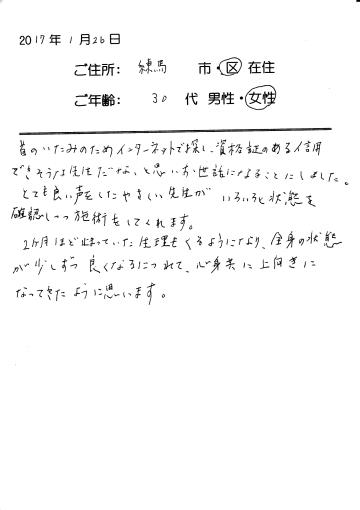 2017年 1月 26日
ご住所: 練馬 市・区 在住
ご年齢: 30 代 男性・女性
首のいたみのためインターネットで探し、資格証のある信用
できそうな先生だな、と思いお世話になることにしました。
とても良い声をしたやさしい先生が いろいろと状態を
確認しつつ施術をしてくれます。
2ヶ月ほど止まっていた生理もくるようになり、全身の状態
が少しずつ 良くなるにつれて、心身共に上向きに
なってきたように思います。